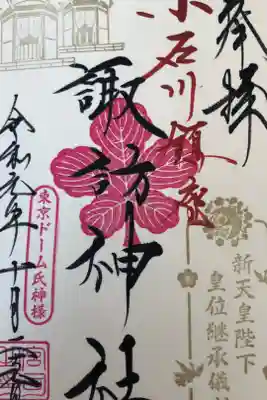 奉拝
小石川鎮座
諏訪神社
令和元年十月二
東京ドーム氏神様
新天皇陛下
皇位継承儀